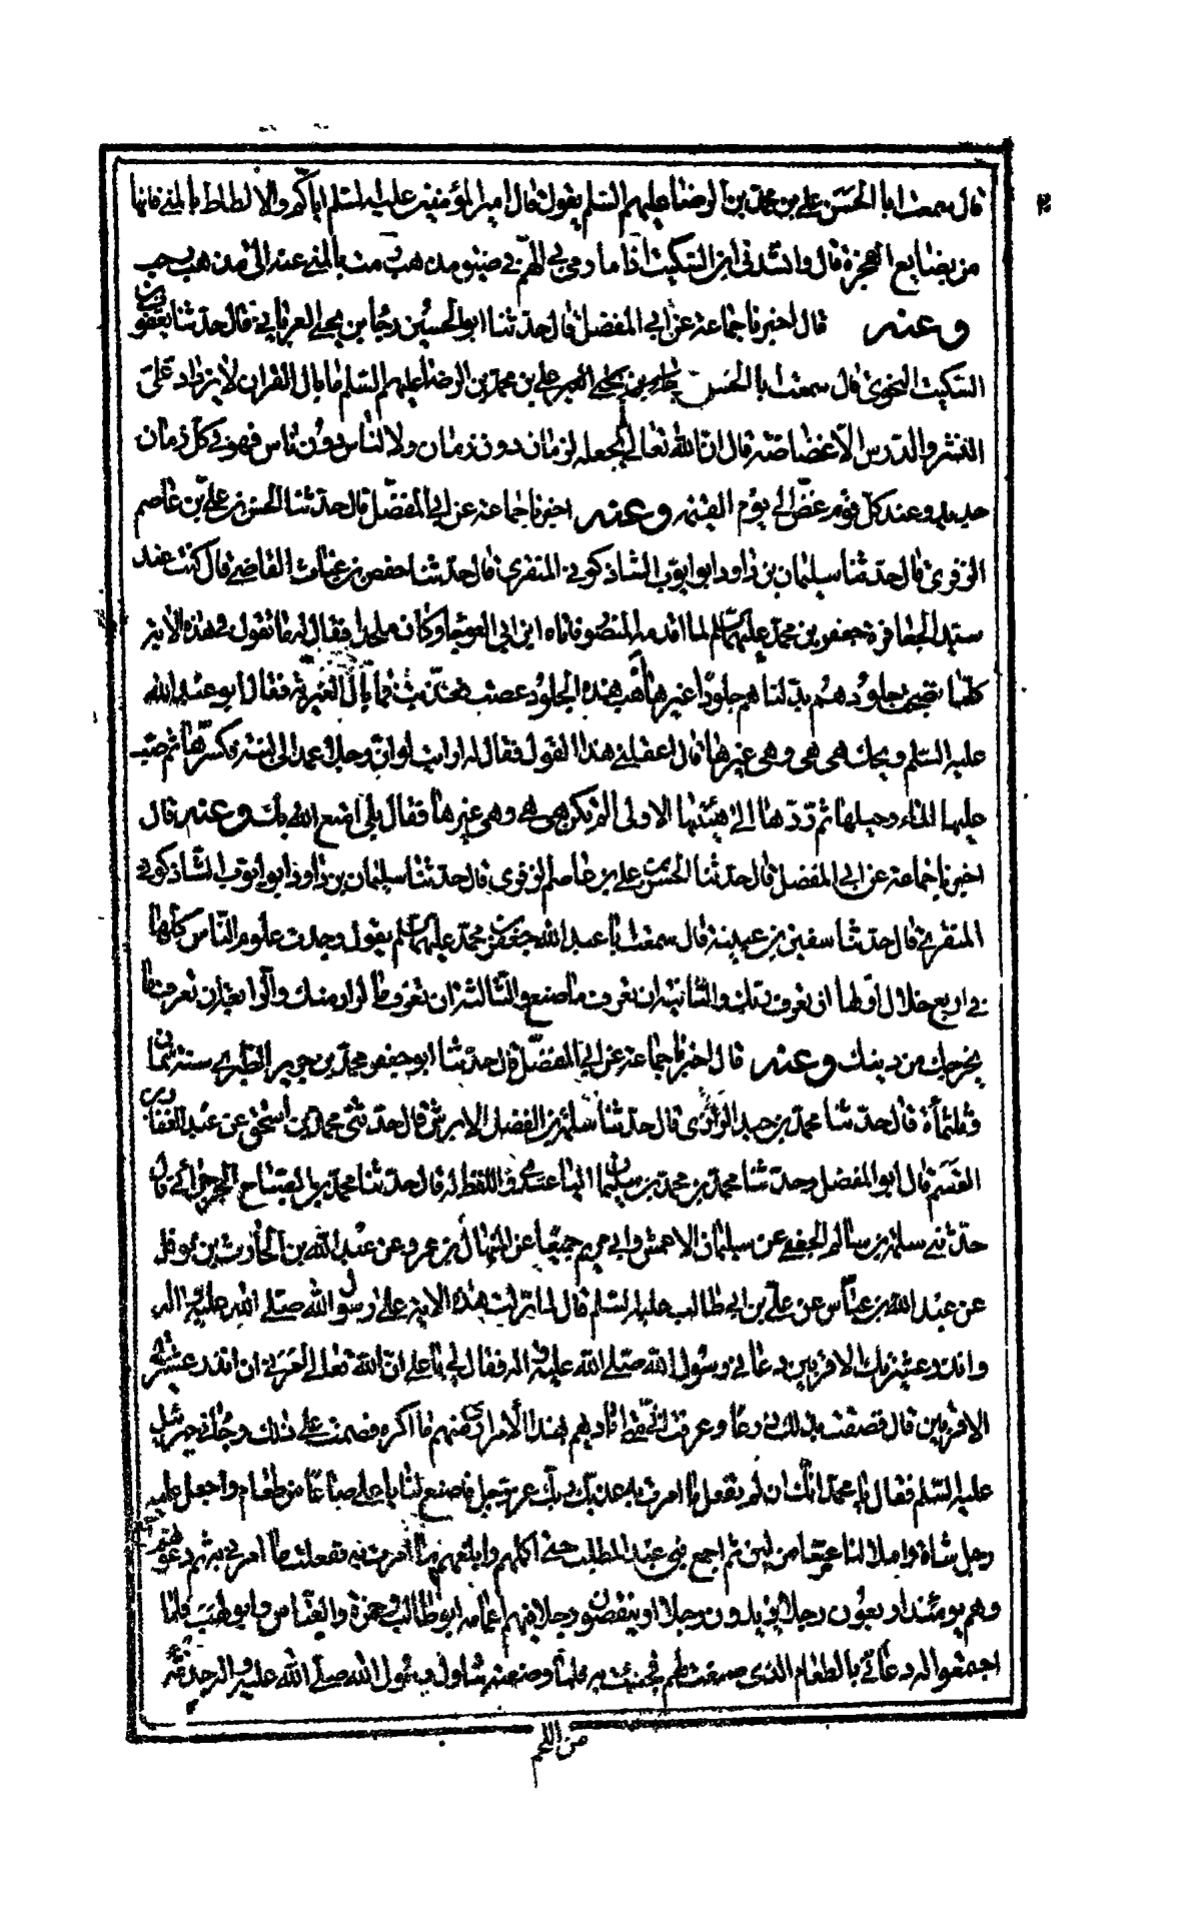 قال سمعت ابا الحسن علي بن محمد بن الرضا عليهم السلم يقول قال امير المؤمنين عليه السلم اياكم والالطاط بالمنى فانها
من بضايع العجزة قال وانشدنى ابن السكيت اذا ما دمى بى الهم فى ضيق مذهب رمت بالمنى عنه الى مذهب رحب
وعنه قال اخبرنا جماعة عن ابي المفضل قال حدثنا ابو الحسين رجا بن يحيى العبرتايى قال حدثنا يعقوب بن
السكيت النحوى قال سمعت ابا الحسن علي بن محمد بن الرضا عليهم السلم ما بال القران لا يزداد على
النشر والدرس الا غضاضة قال ان الله تعالى لم يجعله لزمان دون زمان ولا لناس دون ناس فهو في كل زمان
جديد وعند كل قوم غض الى يوم القيمة وعنه اخبرنا جماعة عن ابي المفضل قال حدثنا الحسن بن علي بن عاصم
الزفرى قال حدثنا سليمان بن داود ابو ايوب الشاذكونى المنقرى قال حدثنا حفص بن غياث القاضى قال كنت عند
سيد الجعافرة جعفر بن محمد عليهما السلم لما اقدمه المنصور فاتاه ابن ابي العوجا وكان ملحدا فقال له ما تقول فى هذه الاية
كلما نضجت جلودهم بدلناهم جلودا غيرها هب هذه الجلود عصت فعذبت فما بال الغيرية فقال ابو عبد الله
عليه السلم ويحك هى هى وهى غيرها قال اعقلنى هذا القول فقال له ارايت لو ان رجلا عمد الى لبنة فكسرها ثم صب
عليها الماء وجبلها ثم ردها الى هيئتها الاولى الم تكن هى هى وهى غيرها فقال بلى امتع الله بك وعنه قال
اخبرنا جماعة عن ابي المفضل قال حدثنا الحسن بن علي بن عاصم الزفرى قال حدثنا سليمان بن داود ابو ايوب الشاذكونى
المنقرى قال حدثنا سفين بن عيينة قال سمعت ابا عبد الله جعفر بن محمد عليهما السلم يقول وجدت علوم الناس كلها
فى اربع خلال اولها ان تعرف ربك والثانية ان تعرف ما صنع والثالثة ان تعرف ما اراد منك والرابعة ان تعرف ما
يخرجك من دينك وعنه قال اخبرنا جماعة عن ابي المفضل قال حدثنا ابو جعفر محمد بن جرير الطبرى سنة ثمان
وثلثمأة قال حدثنا محمد بن حميد الرازى قال حدثنا سلمة بن الفضل الابرش قال حدثنى محمد بن اسحق عن عبد الغفار بن
القسم قال ابو المفضل وحدثنا محمد بن محمد بن سليمان الباغندى واللفظ له قال حدثنا محمد بن الصباح الجرجرائى قال
حدثنى سلمة بن سالم الجعفى عن سليمان الاعمش وابى مريم جميعا عن المنهال بن عمرو عن عبد الله بن الحارث بن نوفل
عن عبد الله بن عباس عن علي بن ابي طالب عليه السلم قال لما نزلت هذه الاية على رسول الله صلى الله عليه واله
وانذر عشيرتك الاقربين دعانى رسول الله صلى الله عليه واله فقال لى يا علي ان الله تعالى امرنى ان انذر عشيرتى
الاقربين قال فضقت بذلك ذرعا وعرفت انى متى اناديهم بهذا الامر ارى منهم ما اكره فصمت على ذلك وجاءنى جبرئيل
عليه السلم فقال يا محمد انك ان لم تفعل ما امرت به عذبك ربك عز وجل فاصنع لنا يا علي صاعا من طعام واجعل عليه
رجل شاة واملا لنا عسا من لبن ثم اجمع بنى عبد المطلب حتى اكلمهم وابلغهم ما امرت به ففعلت ما امرنى به ثم دعوتهم
وهم يومئذ اربعون رجلا يزيدون رجلا او ينقصون رجلا فيهم اعمامه ابو طالب وحمزة والعباس وابو لهب فلما
اجتمعوا له دعانى بالطعام الذى صنعت لهم فجئت به فلما وضعته تناول رسول الله صلى الله عليه واله جذمة
من اللحم